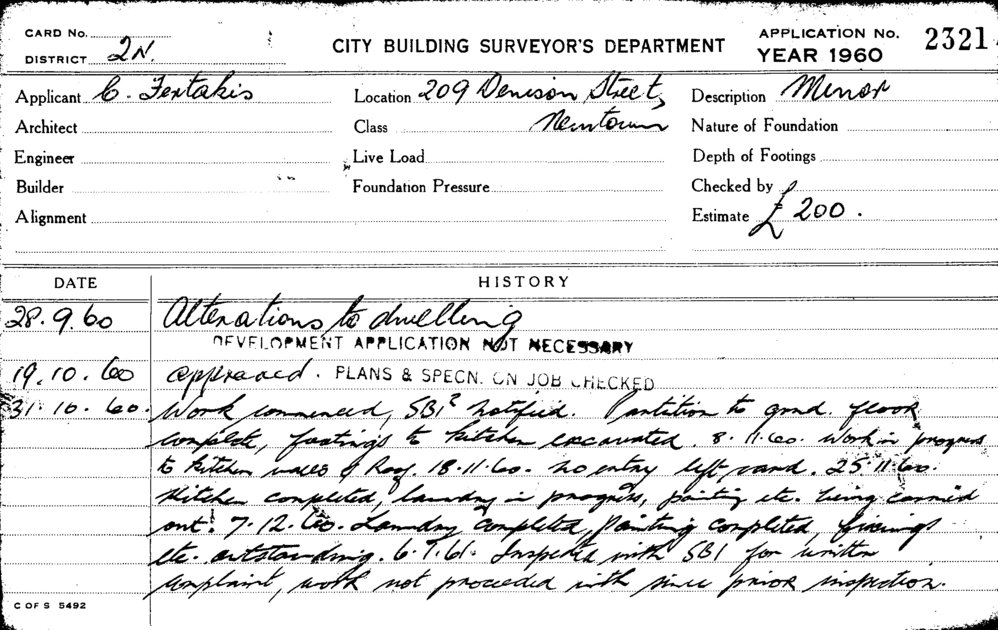 CARD No.
DISTRICT 2N.
CITY BUILDING SURVEYOR'S DEPARTMENT
APPLICATION No. 2321
YEAR 1960
Applicant C. Fertakis
Location 209 Denison Street,
Newtown
Description Minor
Architect
Class
Nature of Foundation
Engineer
Live Load
Depth of Footings
Builder
Foundation Pressure
Checked by
Alignment
Estimate £200.
DATE HISTORY
28.9.60 Alterations to dwelling
DEVELOPMENT APPLICATION NOT NECESSARY
19.10.60 approved. PLANS & SPECN. ON JOB CHECKED
31.10.60. Work commenced, SBI notified. Partition to grnd. floor
complete, footings to kitchen excavated. 8.11.60. Work in progress
to kitchen walls & Roof. 18.11.60. No entry left card. 25.11.60.
Kitchen completed, laundry in progress, painting etc. being carried
out. 7.12.60. Laundry completed, Painting completed, fixings
etc. outstanding. 6.7.61. Inspected with SBI for written
complaint, work not proceeded with since prior inspection.
C OF S 5492